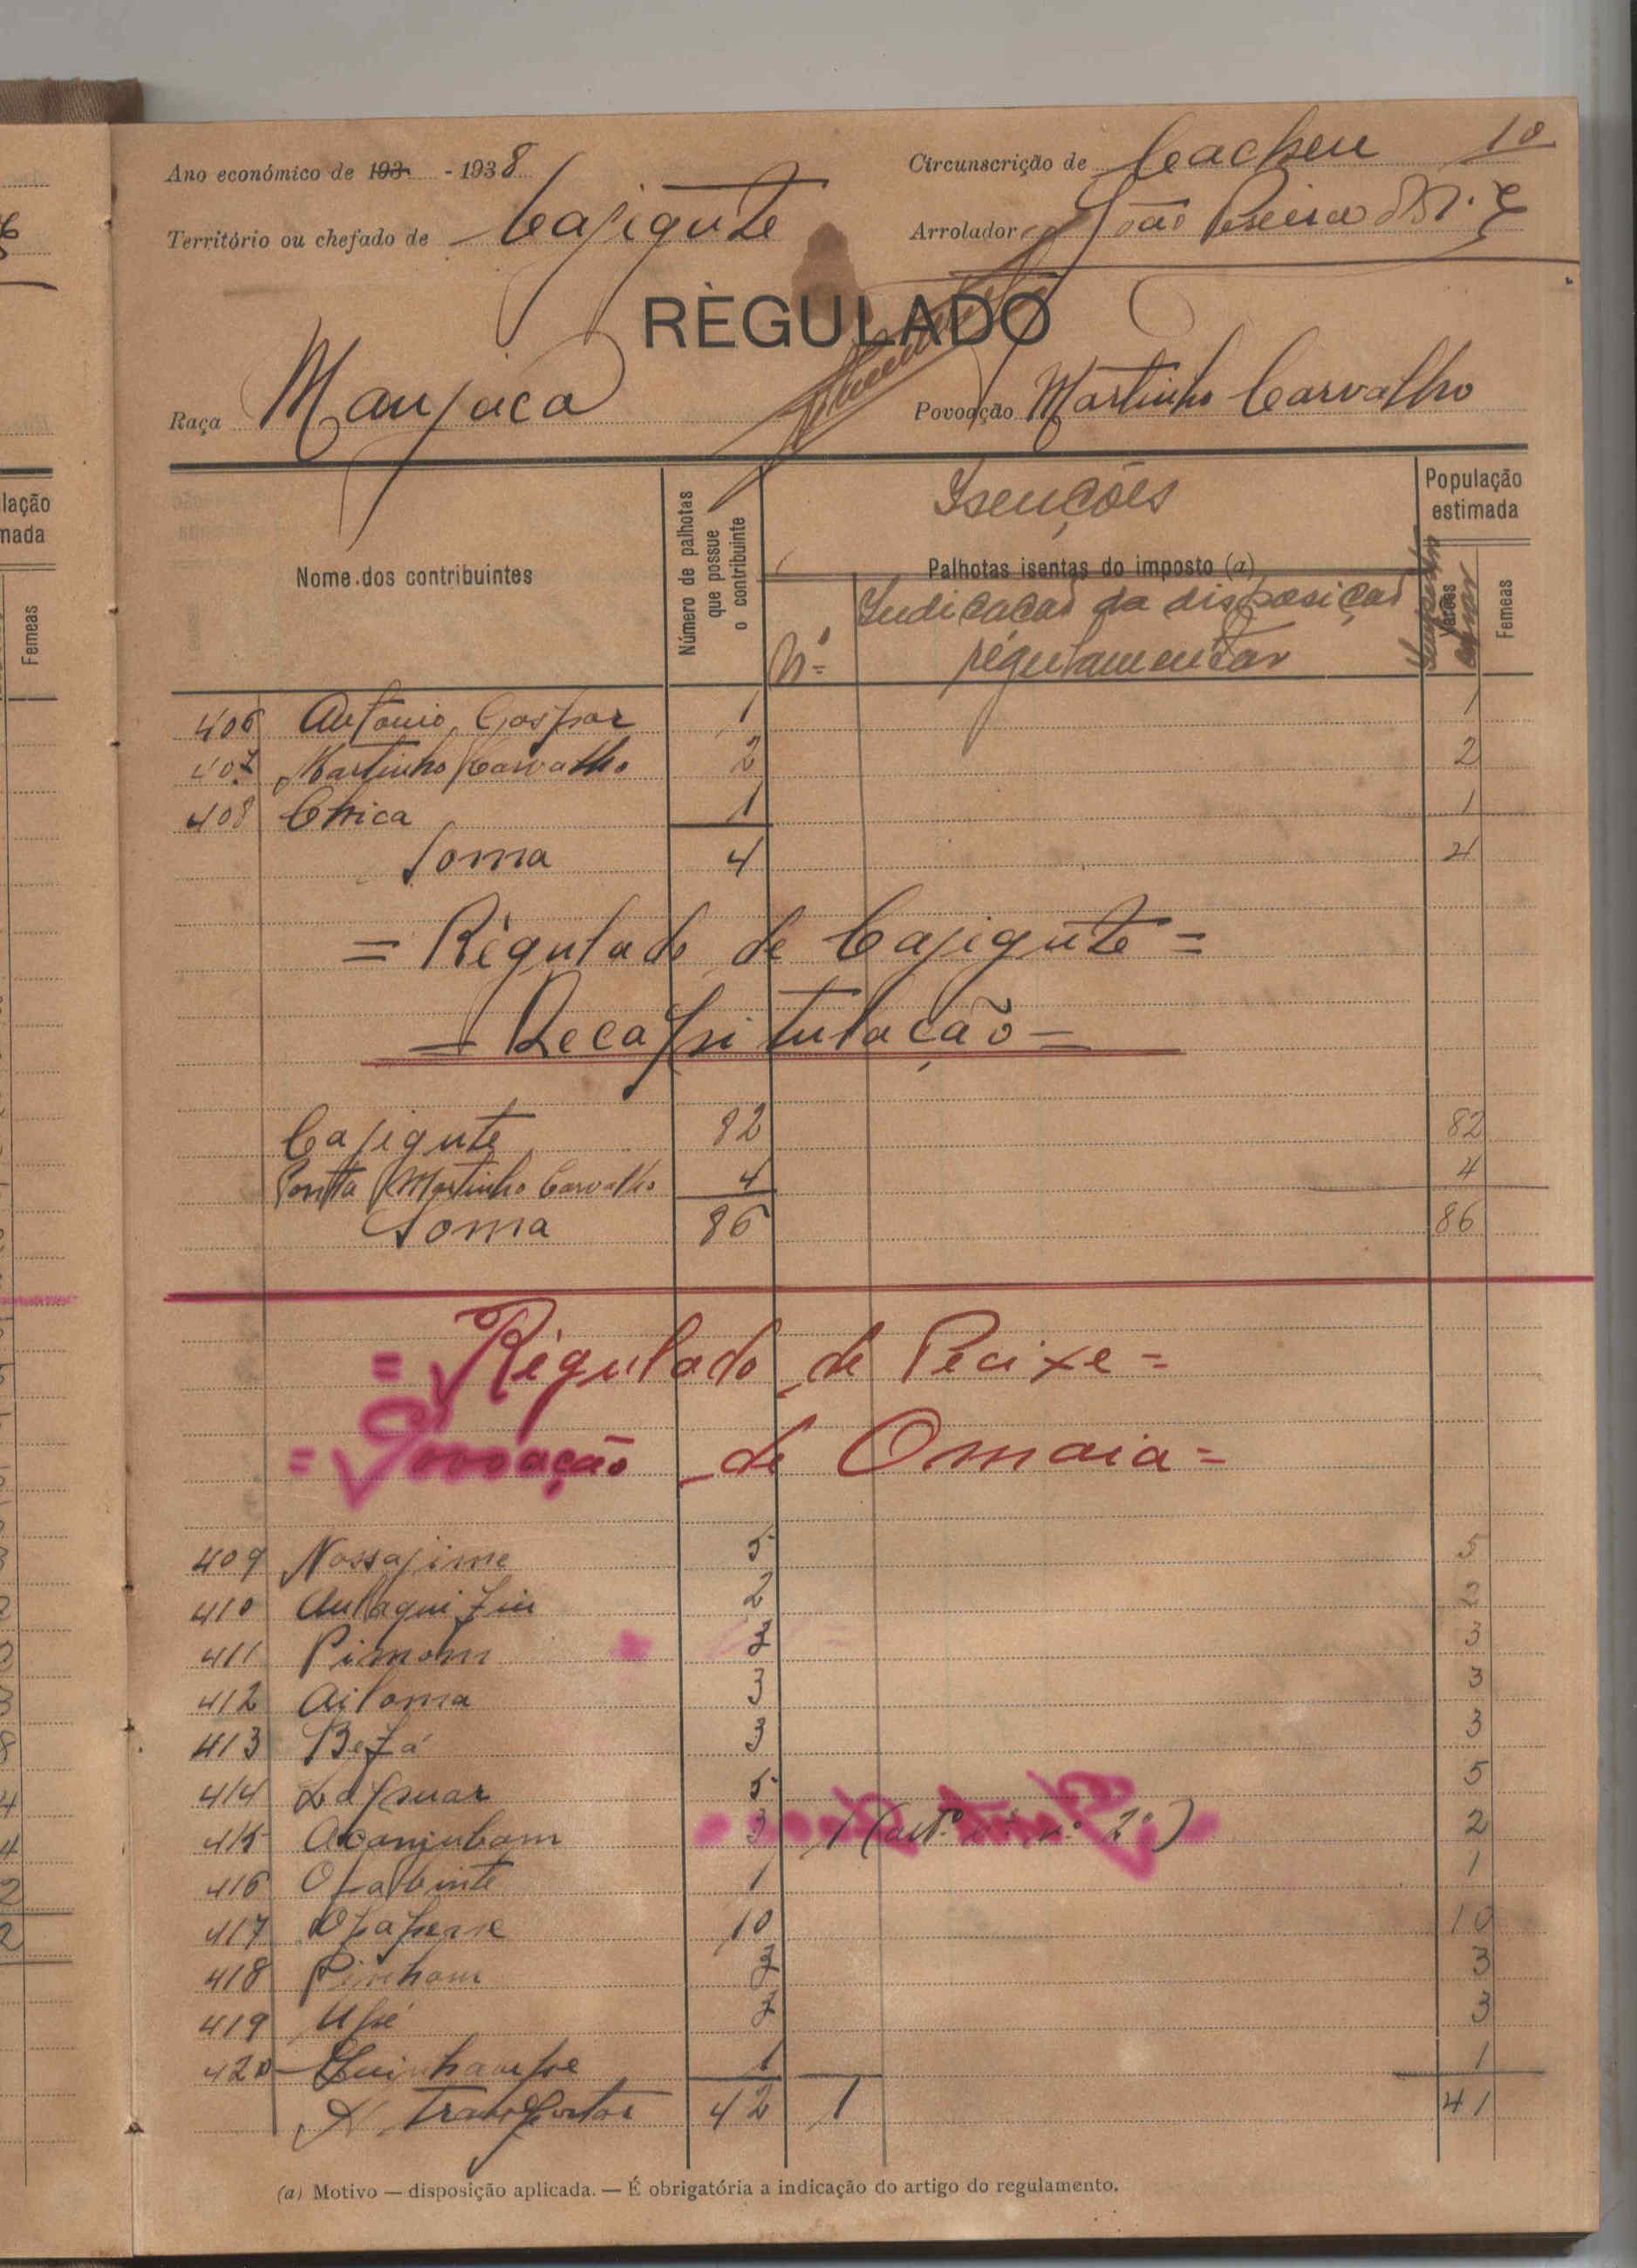 Ano económico de 193 - 1938
Circunscrição de Cacheu 10
Território ou chefado de Cajigute
Arrolador João
RÈGULADO
Raça Manjaca
Povoação Martinho Carvalho
Nome dos contribuintes
Número de palhotas que possue o contribuinte
Isenções
Palhotas isentas do imposto (a)
Nº
Indicação da disposição
regulamentar
População estimada
Varões
Femeas
406 António Gaspar 1 1
407 Martinho Carvalho 2 2
408 Chica 1 1
Soma 4 4
= Règulado de Cajigute =
= Recapitulação =
Cajigute 82 82
Ponta Martinho Carvalho 4 4
Soma 86 86
= Règulado de Pecixe =
= Povoação de Omaia =
409 Nassajime 5 5
410 2 2
411 Pimom 3 3
412 Ailoma 3 3
413 Befá 3 3
414 5 5
415 Acanjubam 3 1 (artº nº 2º) 2
416 1 1
417 10 10
418 Pinham 3 3
419 Upé 3 3
420 Quinhampe 1 1
A Transportar 42 1 41
(a) Motivo — disposição aplicada. — É obrigatória a indicação do artigo do regulamento.
lação
mada
Femeas